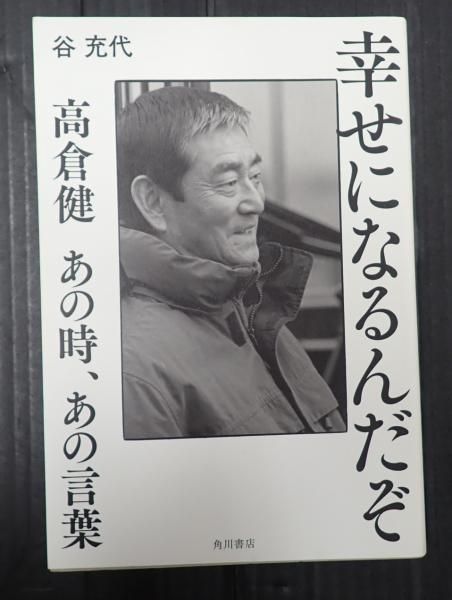 幸せになるんだぞ
谷 充代
高倉健 あの時、あの言葉
角川書店